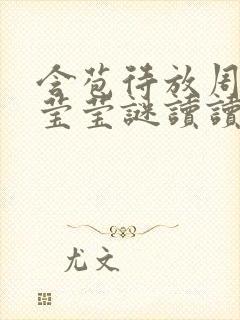 含苞待放周
莹莹謎讀讀
尤文